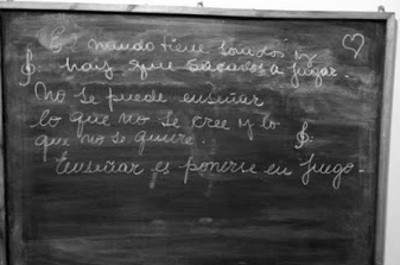 El mundo tiene sonidos y
hay que sacarlos a jugar.
No se puede enseñar
lo que no se cree y lo
que no se quiere.
Enseñar es ponerse en juego.